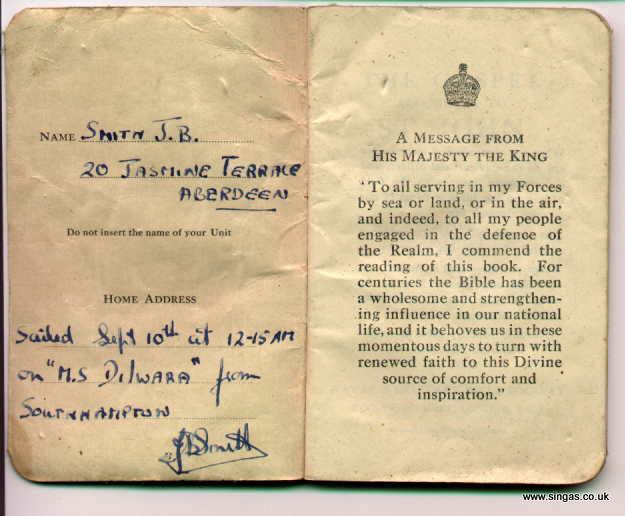 NAME SMITH J.B.
20 JASMINE TERRACE
ABERDEEN
Do not insert the name of your Unit
HOME ADDRESS
Sailed Sept 10th at 12-15 AM
on "M.S DILWARA" from
SOUTHHAMPTON
JBSmith
A MESSAGE FROM
HIS MAJESTY THE KING
"To all serving in my Forces
by sea or land, or in the air,
and indeed, to all my people
engaged in the defence of
the Realm, I commend the
reading of this book. For
centuries the Bible has been
a wholesome and strengthen-
ing influence in our national
life, and it behoves us in these
momentous days to turn with
renewed faith to this Divine
source of comfort and
inspiration."
www.singas.co.uk